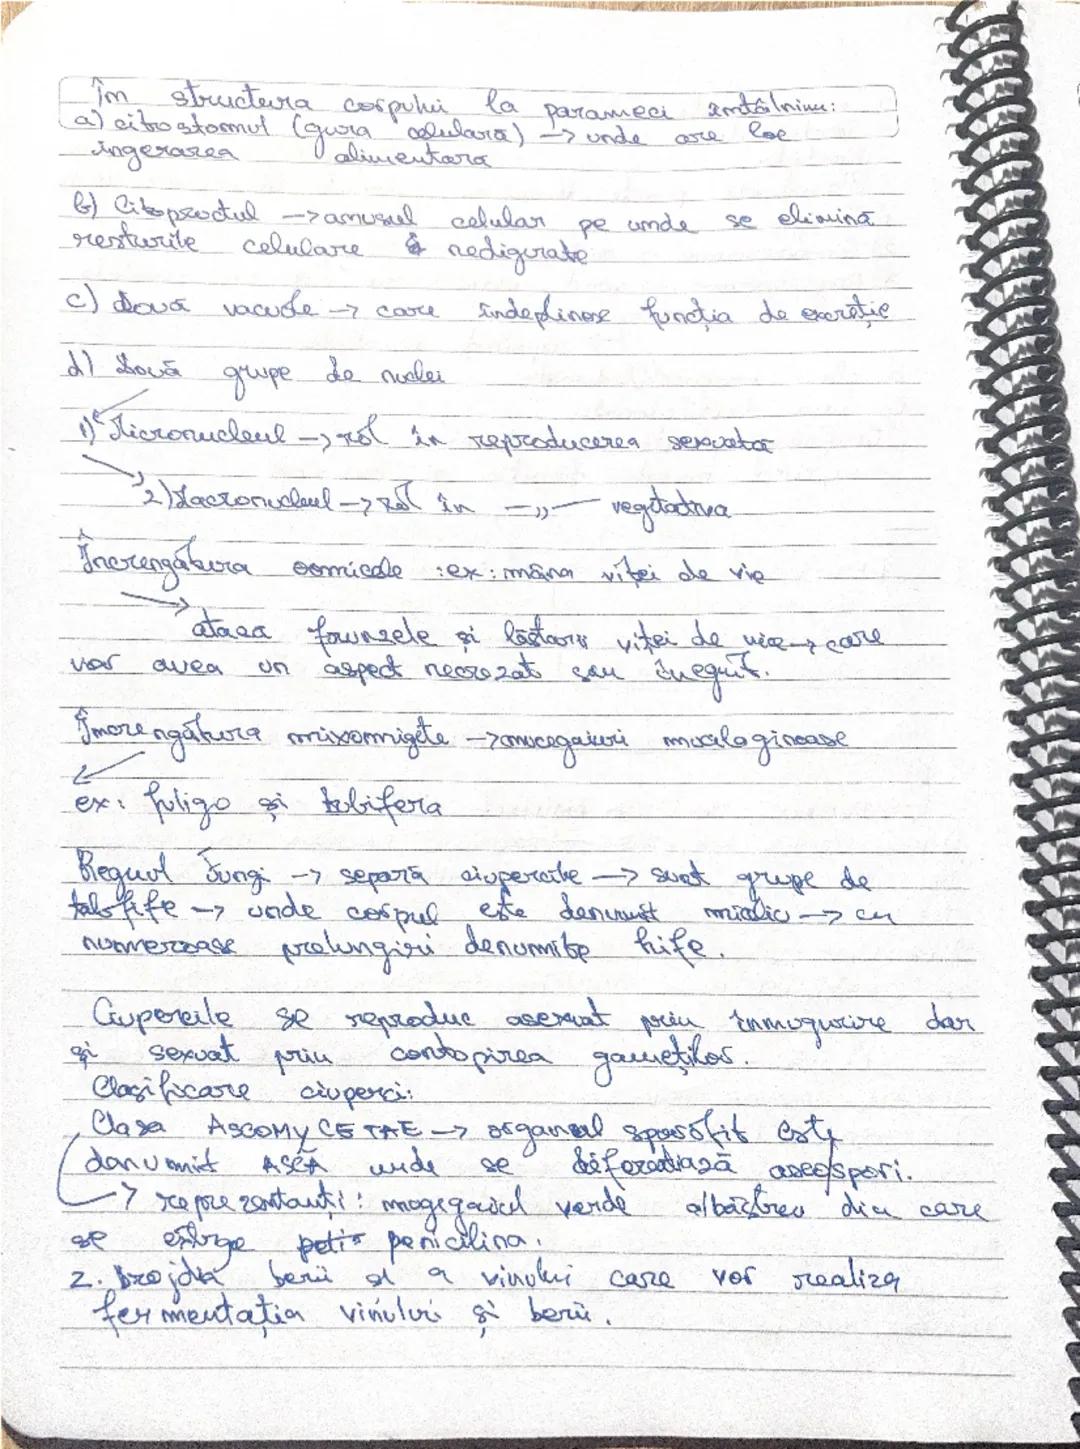 În structura corpului la parameci întâlnim:
a) citostomul (gura celulara) → unde are loc
ingerarea alimentara
b) Citoproctul → anusul celular pe unde se elimină
resturile celulare nedigerate
c) Două vacuole → care îndeplinesc funcția de excreție
d) Două grupe de nuclei
1) Micronucleul → rol în reproducerea sexuată
2) Macronucleul → rol în —„— vegetativa
Încrengătura oomicete : ex: mana viței de vie
ataca frunzele și lăstarii viței de vie → care
vor avea un aspect necrozat sau înegrit.
Încrengătura mixomigete → mucegaiuri mucilaginoase
ex: fuligo și tubifera
Regnul Fungi → separă ciupercile → sunt grupe de
→ unde corpul este denumit miceliu → cu
numeroase prelungiri denumite hife.
Ciupercile se reproduc asexuat prin înmugurire dar
și sexuat prin contopirea gameților.
Clasificare ciuperci:
Clasa ASCOMYCETAE → organul sporofit este
danumit ASCĂ unde se diferențiază ascospori.
→ reprezentanți: mogegaiul verde albăstreu din care
se extrge penicilina.
2. Drojdia berii și a vinului care vor realiza
fermentația vinului și berii.